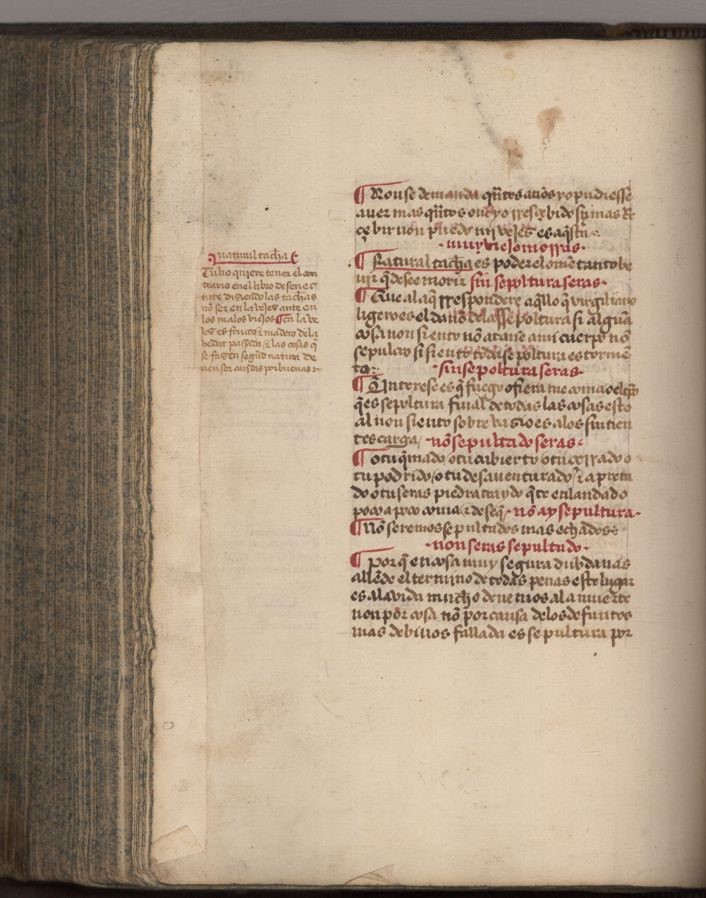 ¶ natural tacha
Tulio quiere tener el con
trario en el libro de senec
tute diziendo las tachas
nõ ser en la vejes ante en
los malos viejos ¶ en la ve
jes es fruta τ madero de la
hedat pasada τ las cosas q̃
se fazen segũd natura de
uen ser
por buenas
¶ Non se demanda q̃ntos años yo pudiesse
aver mas q̃ntos
rresçebido sy mas
çebir non puedo mi vejes es aq̃sta
muy viejo morras
¶ Natural tacha es poder el ome tanto be
uir q̃ desee morir sin sepoltura seras
¶ Que al aq̃ rrespondere aq̃llo q̃ virgiliano
ligero es el daño de la sepoltura si alguã
cosa non siento nõ atañe a mi cuerpo nõ
sepulcro si siento toda sepoltura es tormẽ
to sin sepoltura seras
¶ Que interese es q̃ fuego o fiera me coma o el
q̃ es sepoltura final de todas las cosas esto
al non siento sobre
es a los sintien
tes carga nõ sepultado seras
¶ o tu q̃mado o tu cubierto o tu çerrado o
tu podrido o tu desauenturado τ apreta
do o tu seras piedra
q̃ te en
poco a poco coma τ deseq̃ nõ ay sepultura
¶ Nõ seremos sepultados mas echados
non seras sepultado
¶ Por q̃ en cosa muy segura dubdauas
allẽde el termino de todas penas este lugar
es a la vida mucho
a la muerte
non por cosa nõ por causa de los defuntos
mas de biuos fallada es sepultura por